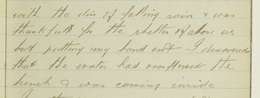 with the din of falling rain & was
thankful for the shelter above us
but putting my hand out I discovered
that the water had overflowed the
bench & was coming inside